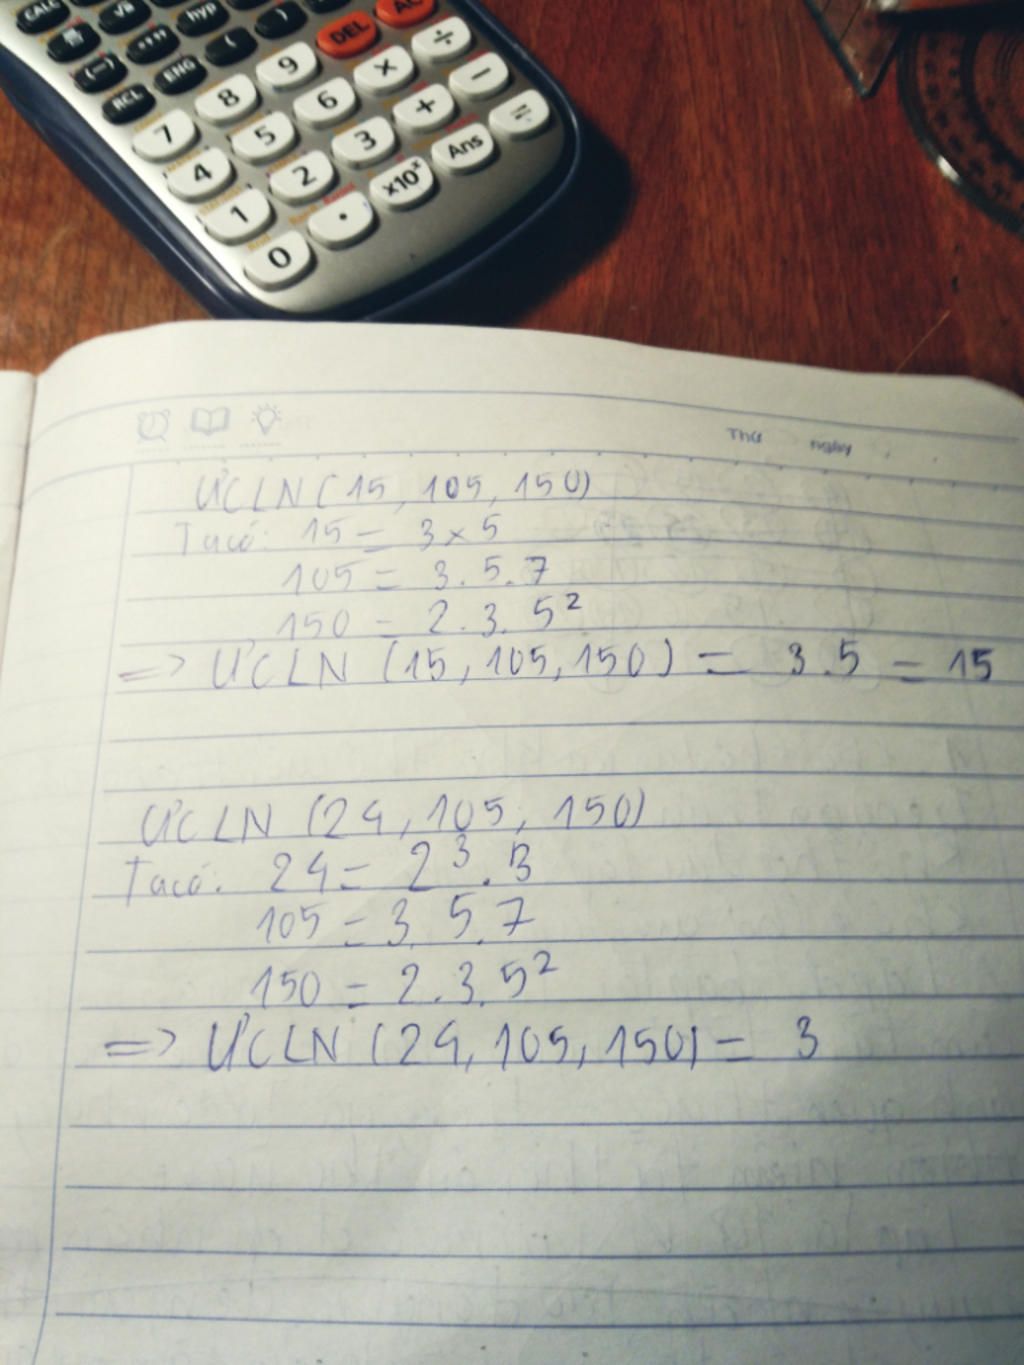 CALC √■ hyp )
°’” (
(−) ENG
RCL
DEL AC
7 8 9 × ÷
4 5 6 + −
1 2 3 Ans =
0 . ×10ˣ
Thứ ngày
ƯCLN (15, 105, 150)
Ta có: 15 = 3 x 5
105 = 3.5.7
150 = 2.3.5²
=> ƯCLN (15, 105, 150) = 3.5 = 15
ƯCLN (24, 105, 150)
Ta có: 24 = 2³.3
105 = 3.5.7
150 = 2.3.5²
=> ƯCLN (24, 105, 150) = 3